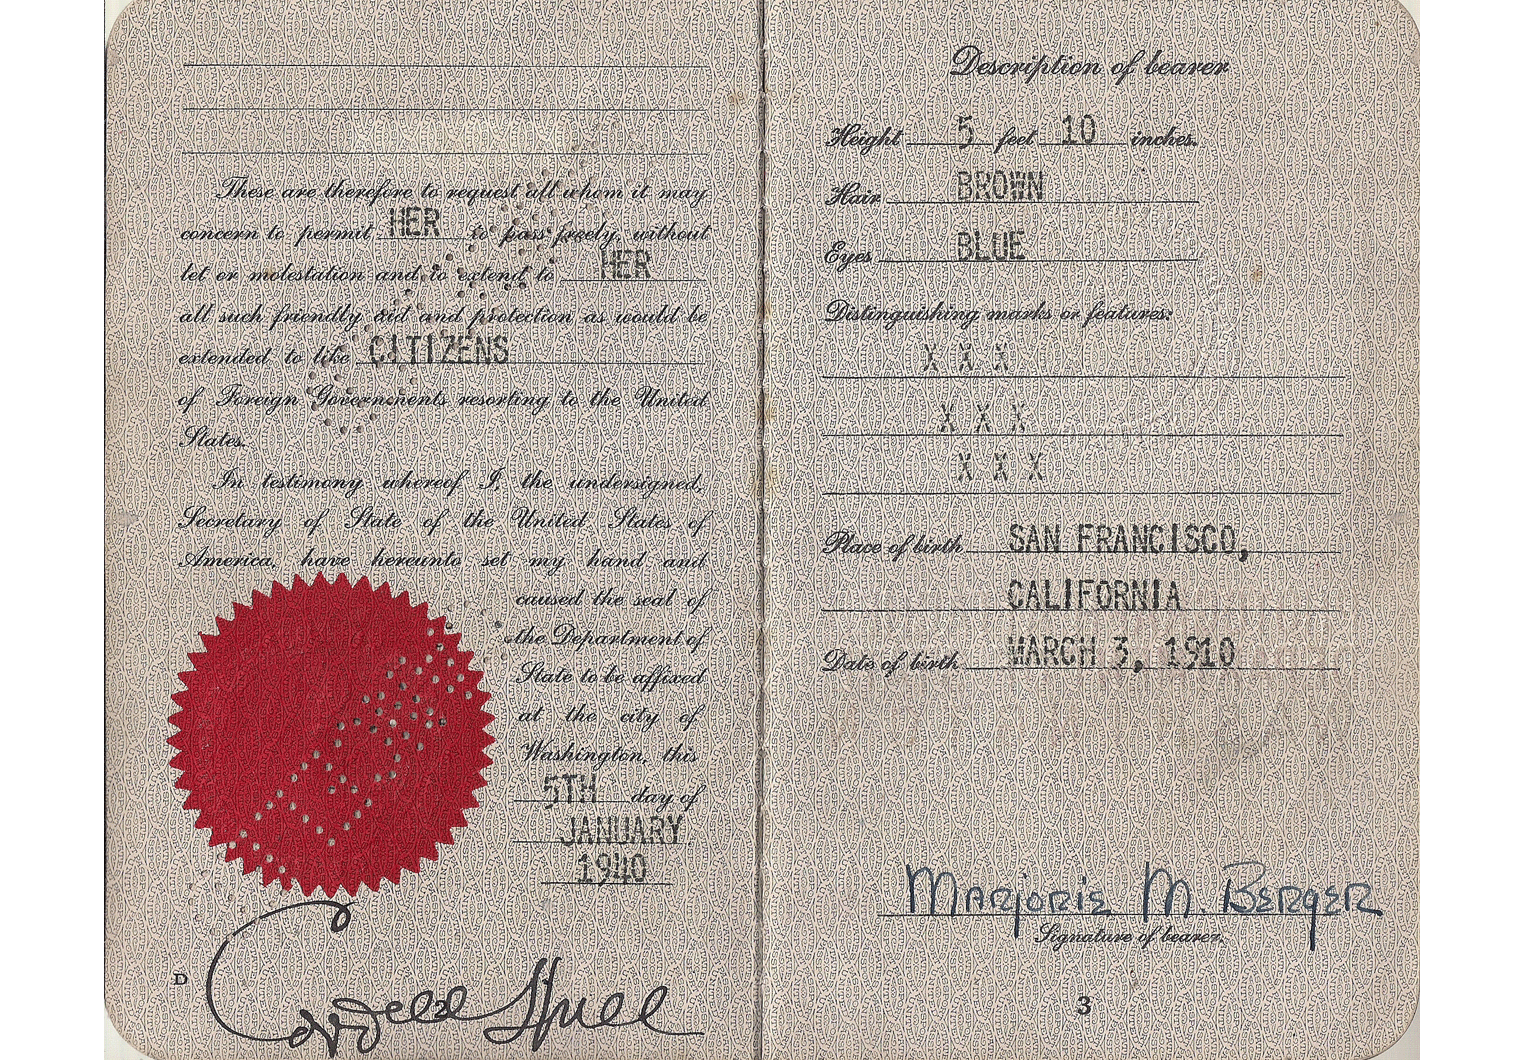 These are therefore to request all whom it may
concern to permit HER to pass freely, without
let or molestation and to extend to HER
all such friendly aid and protection as would be
extended to like CITIZENS
of Foreign Governments resorting to the United
States.
In testimony whereof I, the undersigned,
Secretary of State of the United States of
America, have hereunto set my hand and
caused the seal of
the Department of
State to be affixed
at the city of
Washington, this
5TH day of
JANUARY
1940
D
Cordell Hull
2
Description of bearer
Height 5 feet 10 inches.
Hair BROWN
Eyes BLUE
Distinguishing marks or features:
X X X
X X X
X X X
Place of birth SAN FRANCISCO,
CALIFORNIA
Date of birth MARCH 3, 1910
Marjorie M. Berger
Signature of bearer.
3